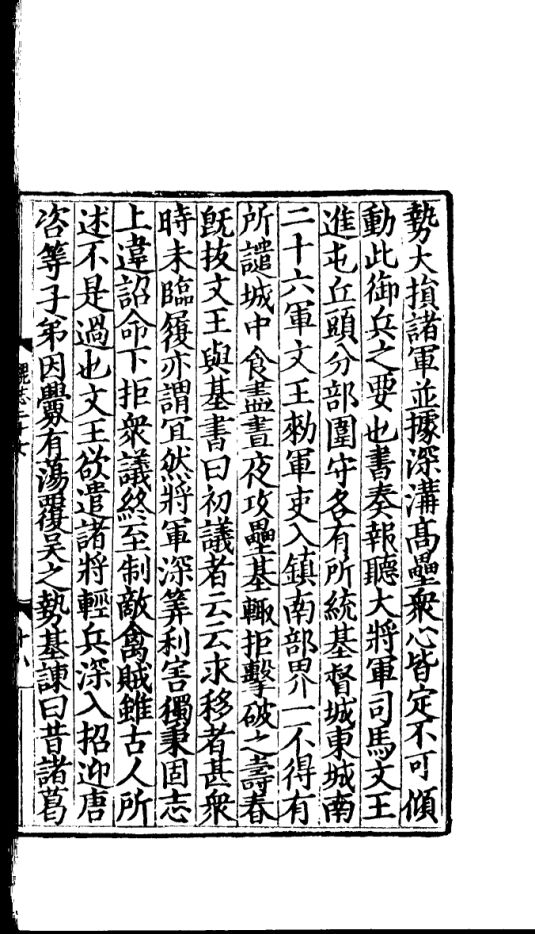 勢大損諸軍並據深溝髙壘衆心皆定不可傾
動此御兵之要也書奏報聽大將軍司馬文王
進屯丘頭分部圍守各有所統基督城東城南
二十六軍文王勑軍吏入鎮南部界一不得有
所譴城中食盡晝夜攻壘基輙拒擊破之壽春
旣拔文王與基書曰初議者云云求移者甚衆
時未臨履亦謂宜然將軍深筭利害獨秉固志
上違詔命下拒衆議終至制敵禽賊雖古人所
述不是過也文王欲遣諸將輕兵深入招迎唐
咨等子弟因釁有蕩覆吳之勢基諫曰昔諸葛